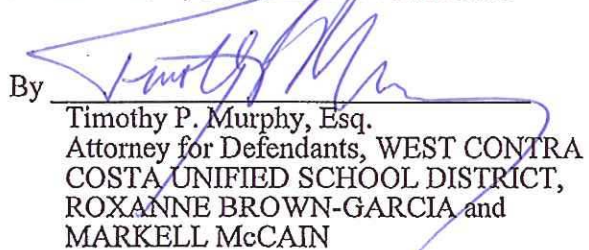 By
Timothy P. Murphy, Esq.
Attorney for Defendants, WEST CONTRA
COSTA UNIFIED SCHOOL DISTRICT,
ROXANNE BROWN-GARCIA and
MARKELL McCAIN